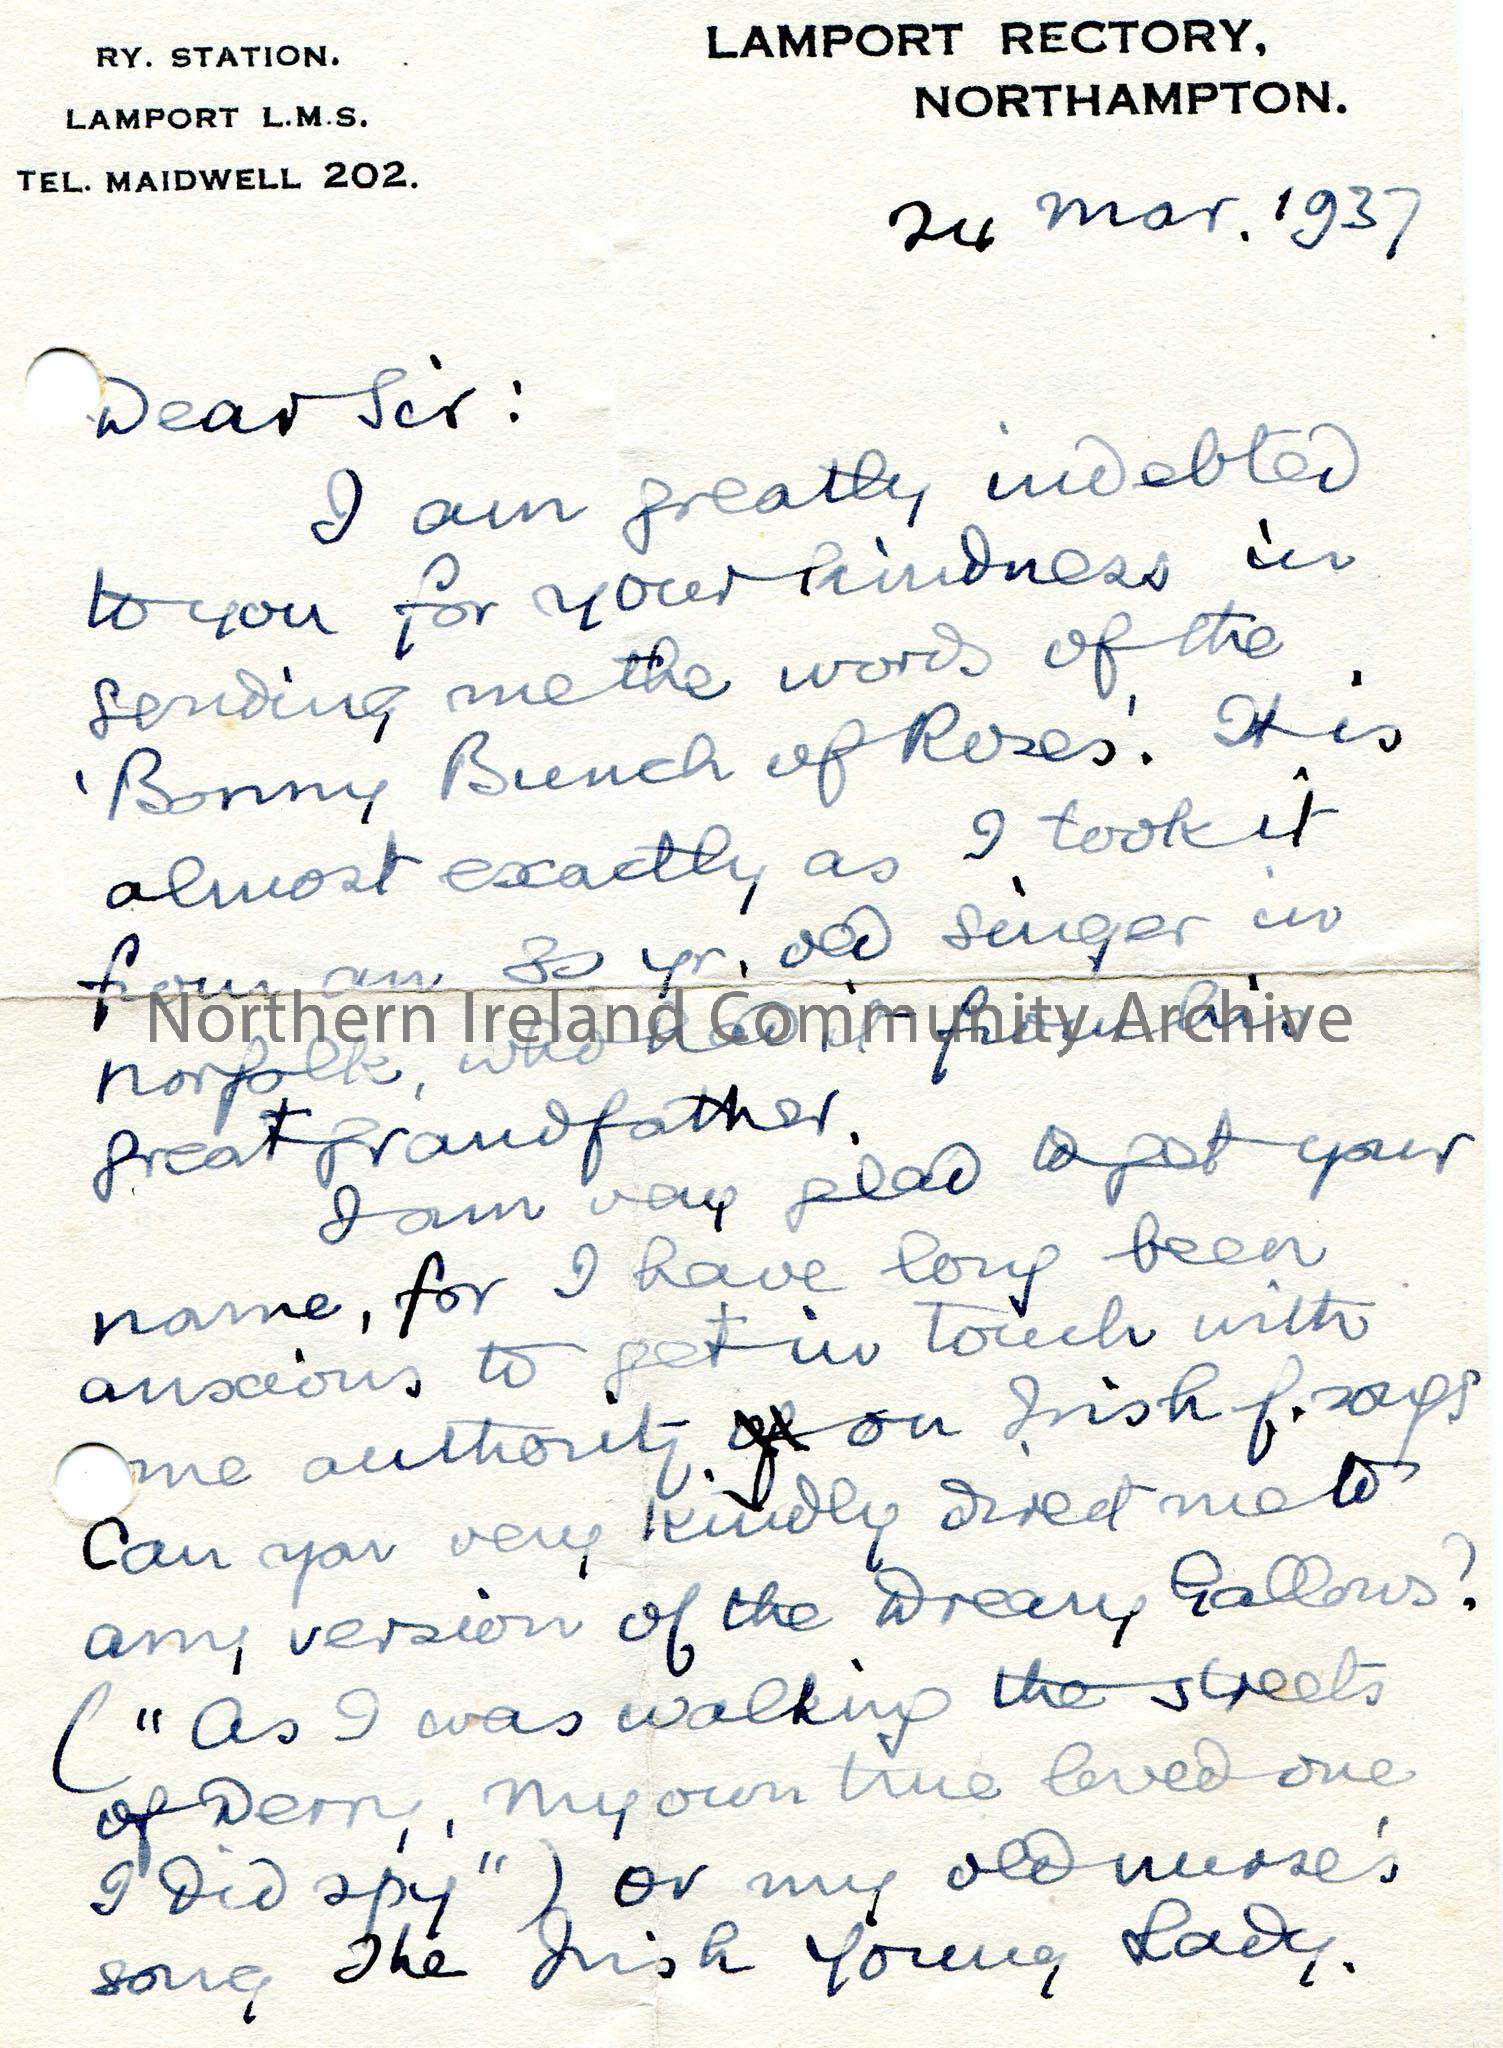 RY. STATION.
LAMPORT L.M.S.
TEL. MAIDWELL 202.
LAMPORT RECTORY,
NORTHAMPTON.
24 Mar. 1937
Dear Sir:
I am greatly indebted
to you for your kindness in
sending me the words of the
'Bonny Bunch of Roses'. It is
almost exactly as I took it
from an 80 yr. old singer in
Northern Ireland Community Archive
Norfolk, who had it from his
great grandfather.
I am very glad to get your
name, for I have long been
anxious to get in touch with
me authority on Irish f. songs
Can you very kindly direct me to
any version of the Dreary Gallows?
("As I was walking the streets
of Derry, My own true loved one
I did spy") or my old nurse's
song The Irish Young Lady.